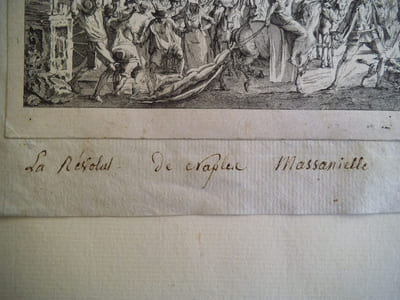 La Révolut. De Naples Massanielle